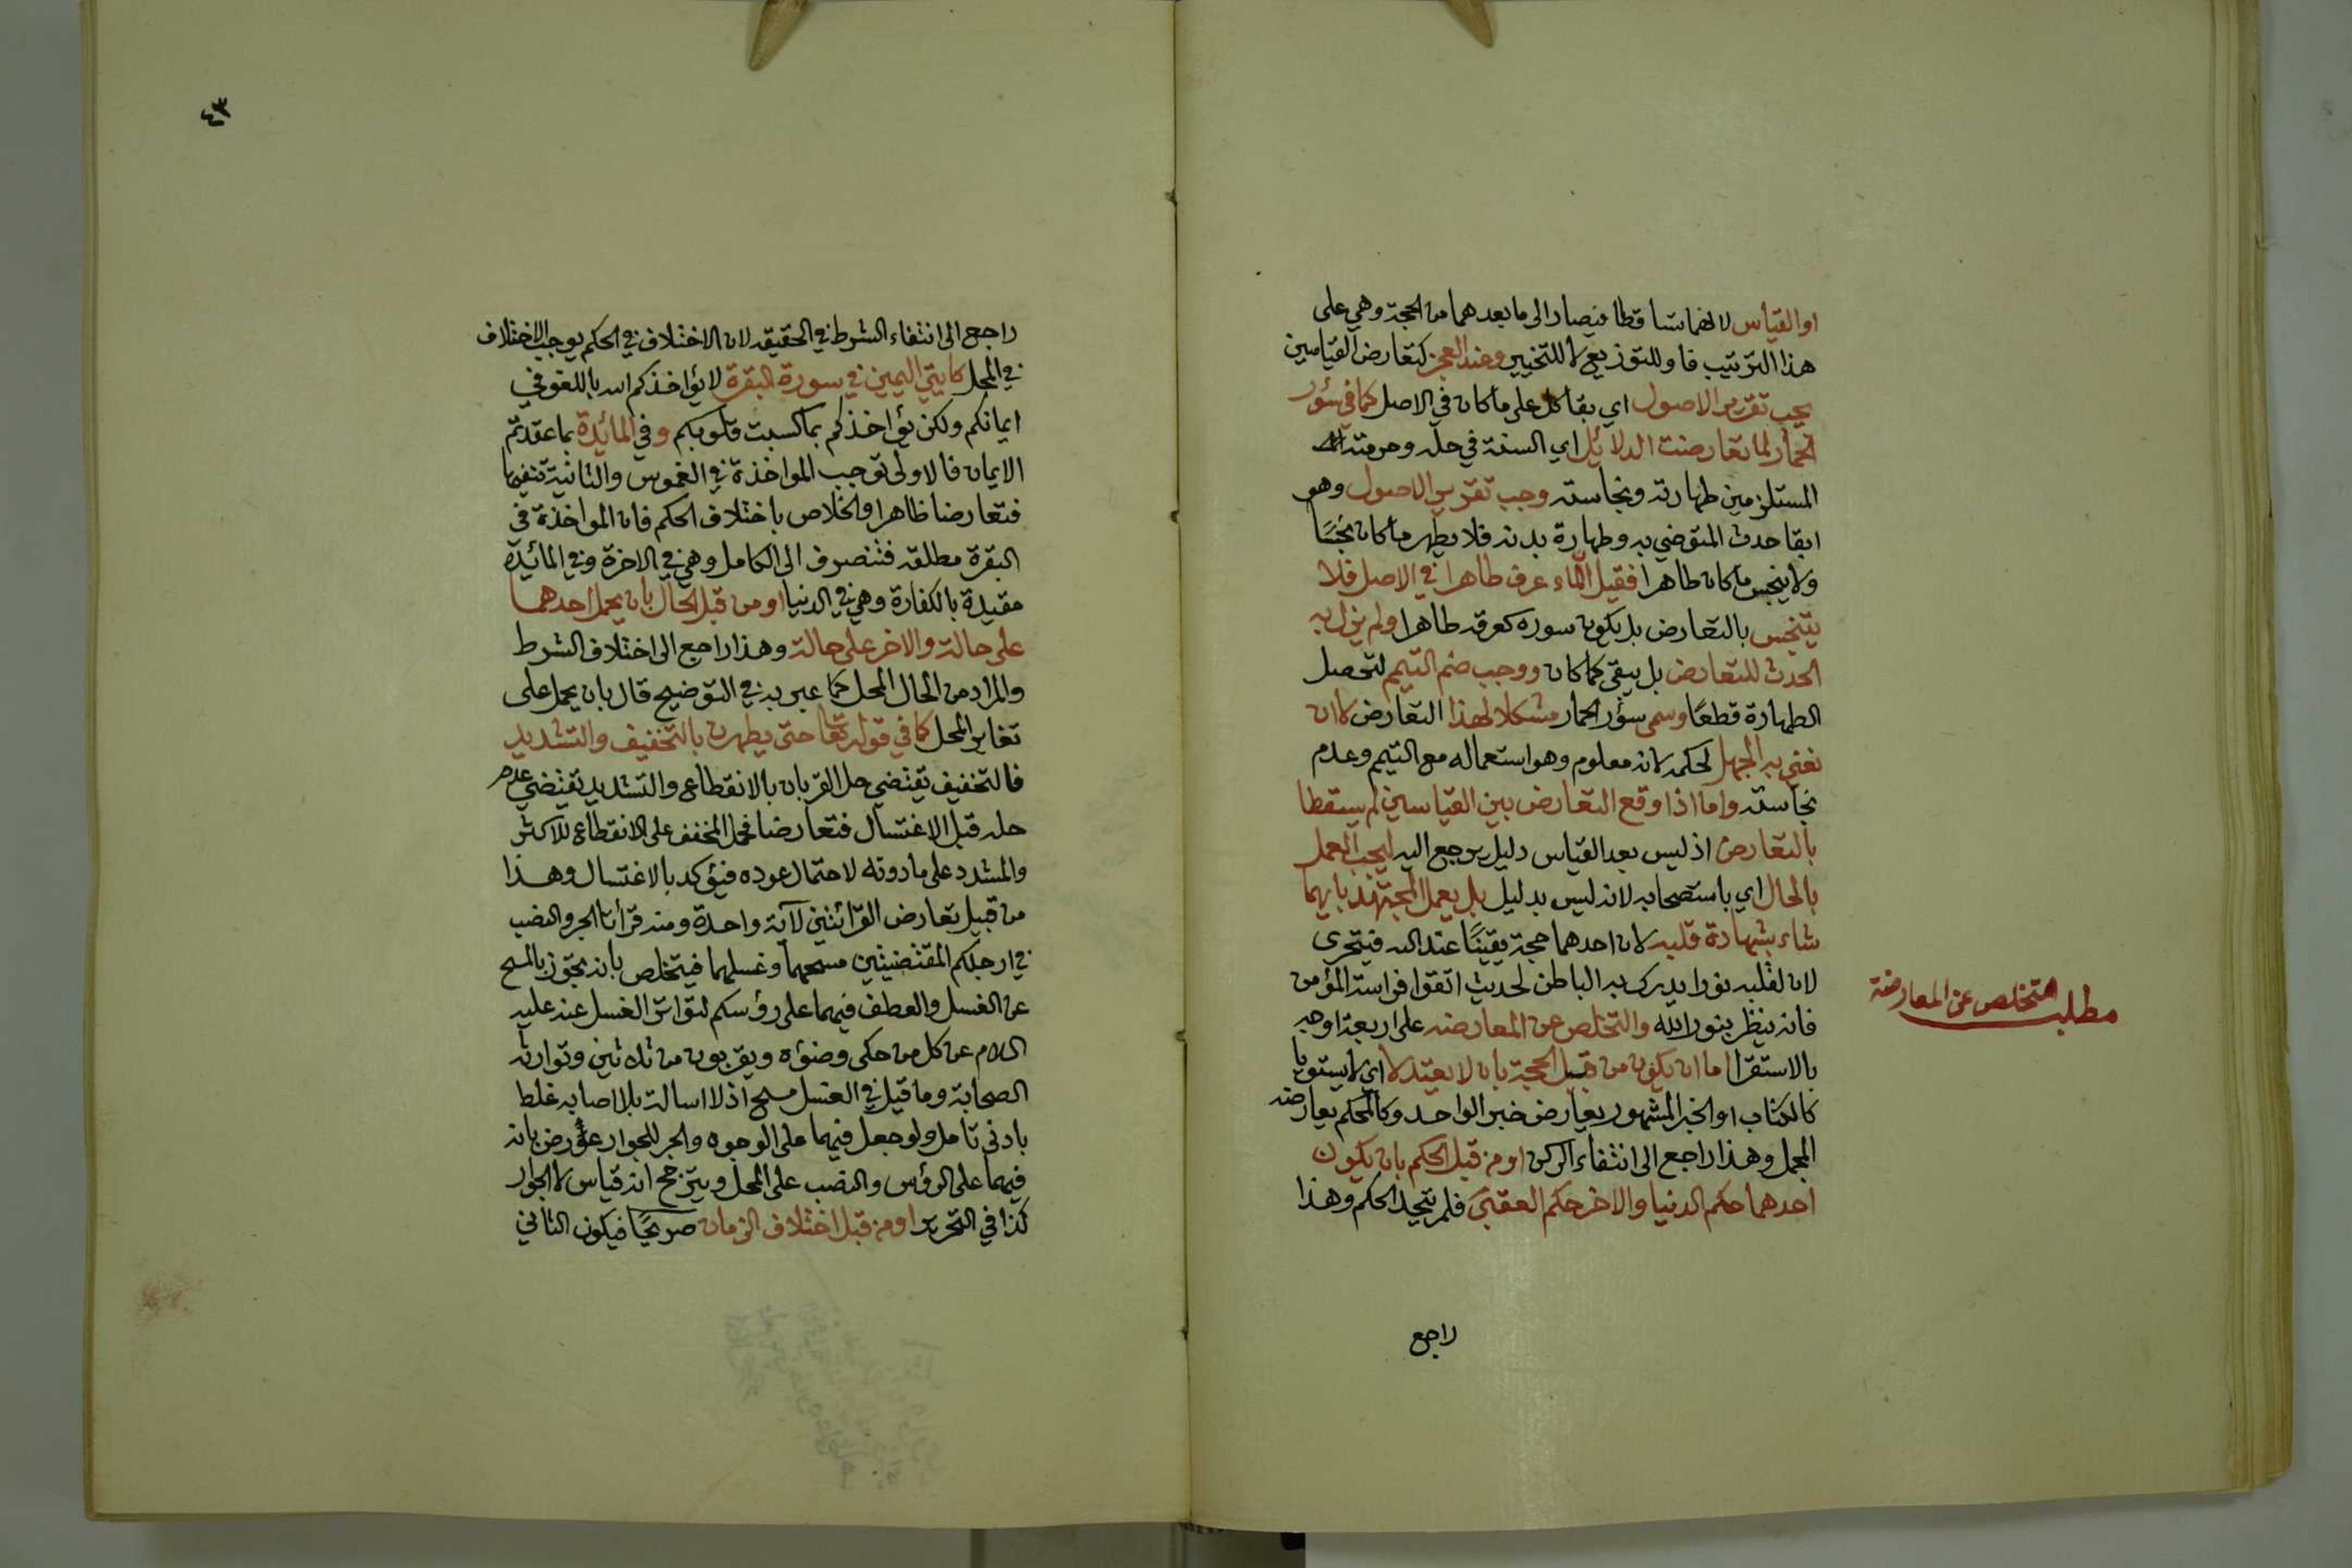 او القياس لانهما تساقطا فيصار الى ما بعدهما من الحجة وهي على
هذا الترتيب فاو للتوزيع لا للتخيير وعند العجز كتعارض القياسين
يجب تقرير الاصول اي بقا كل على ما كان في الاصل كما في سؤر
الحمار لما تعارضت الدلائل اي السنة في حله وحرمته
المستلزمين طهارته ونجاسته وجب تقرير الاصول وهو
ابقا حدث المتوضي به وطهارة بدنه فلا يطهر ما كان نجسًا
ولا ينجس ما كان طاهرا فقيل الماء عرف طاهرا في الاصل فلا
يتنجس بالتعارض بل يكون سوره كعرقه طاهرا ولم يزل به
الحدث للتعارض بل يبقى كما كان ووجب ضم التيمم لتحصل
الطهارة قطعًا وسمي سؤر الحمار مشكلا لهذا التعارض لا ان
نعني به الجهل لحكمه لانه معلوم وهو استعماله مع التيمم وعدم
نجاسته واما اذا وقع التعارض بين القياسين لم يسقطا
بالتعارض اذ ليس بعد القياس دليل يرجع اليه ليجب العمل
بالحال اي باستصحابه لانه ليس بدليل بل يعمل المجتهد بايهما
شاء بشهادة قلبه لان احدهما حجة يقينًا عند الله فيتحرى
لان لقلبه نورا يدرك به الباطن لحديث اتقوا فراسة المؤمن
فانه ينظر بنور الله والتخلص عن المعارضة على اربعة اوجه
مطلب التخلص عن المعارضة
بالاستقرا اما ان يكون من قبل الحجة بان لا يعتدلا اي لا يستويا
كالكتاب او الخبر المشهور يعارض خبر الواحد وكالمحكم يعارضه
المجمل وهذا راجع الى انتفاء الركن او من قبل الحكم بان يكون
احدهما حكم الدنيا والاخر حكم العقبى فلم يتحد الحكم وهذا
راجع
٤٣
راجع الى انتفاء الشرط في الحقيقه لان الاختلاف في الحكم يوجب الاختلاف
في المحل كايتي اليمين في سورة البقرة لا يؤاخذكم الله باللغو في
ايمانكم ولكن يؤاخذكم بما كسبت قلوبكم وفي المائدة بما عقدتم
الايمان فالاولى توجب المواخذة في الغموس والثانية تنفيها
فتعارضا ظاهرا والخلاص باختلاف الحكم فان المواخذة في
البقرة مطلقه فتنصرف الى الكامل وهي في الاخرة وفي المائدة
مقيدة بالكفارة وهي في الدنيا او من قبل الحال بان يحمل احدهما
على حالة والاخر على حالة وهذا راجع الى اختلاف الشرط
والمراد من الحال المحل كما عبر به في التوضيح قال بان يحمل على
تغاير المحل كما في قوله تعا حتى يطهرن بالتخفيف والتشديد
فالتخفيف يقتضي حل القربان بالانقطاع والتشديد يقتضي عدم
حله قبل الاغتسال فتعارضا فحمل المخفف على الانقطاع للاكثر
والمشدد على ما دونه لاحتمال عوده فيؤكد بالاغتسال وهذا
من قبيل تعارض القرائتين لآية واحدة ومنه قرأتا الجر والنصب
في ارجلكم المقتضيتين مسحهما وغسلهما فيتخلص بانه تجوز بالمسح
عن الغسل والعطف فيهما على رؤسكم لتواتر الغسل عنه عليه
السلام عن كل من حكى وضؤه ويقربون من ثلاثين وتوارثه
الصحابة وما قيل في الغسل مسح اذ لا اسالة بلا اصابه غلط
بادنى تامل ولو جعل فيهما على الوجوه والجر للجوار عورض بانه
فيهما على الرؤس والنصب على المحل ويترجح انه قياس لا الجوار
كذا في التحرير او من قبل اختلاف الزمان صريحًا فيكون الثاني